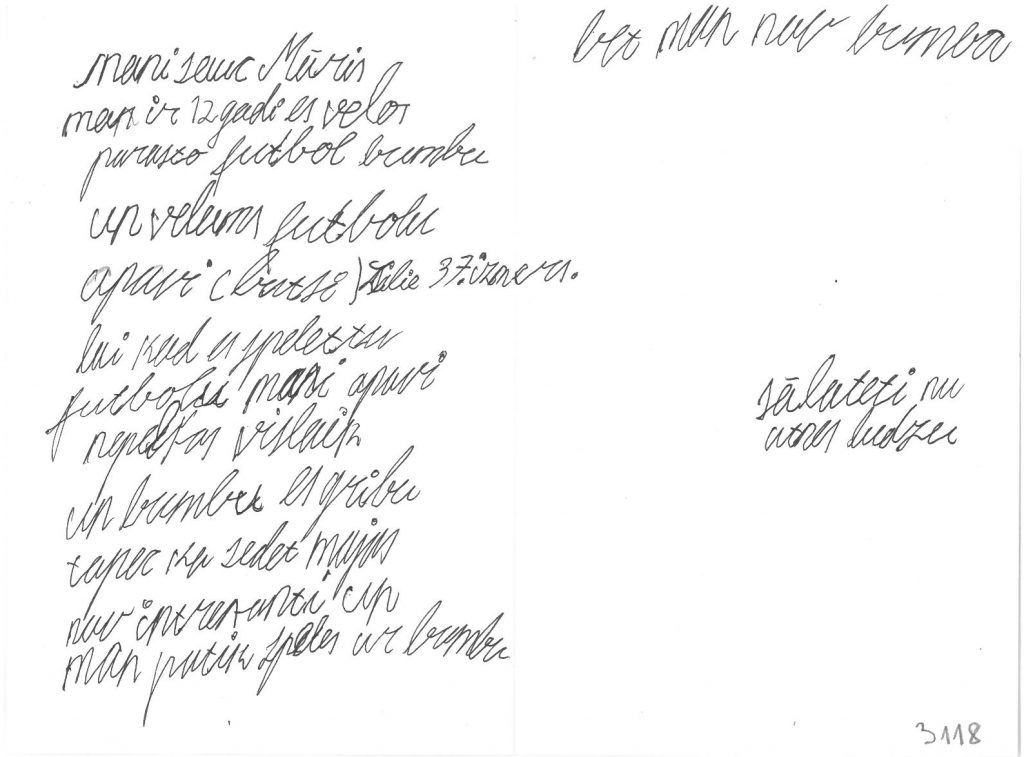 mani sauc Māris
man ir 12 gadi es velos
parasto futbol bumbu
un velams futbolu
apavi (butsi) Žilie 37. izmers.
lai kad es speletu
futbolu mani apavi
nepaliktos vislaik
un bumbu es gribu
tapec ka sedet majas
nav intresanti un
man patik speles ar bumbu
bet man nav bumba
sālatēti nu
atnes ludzu
3118